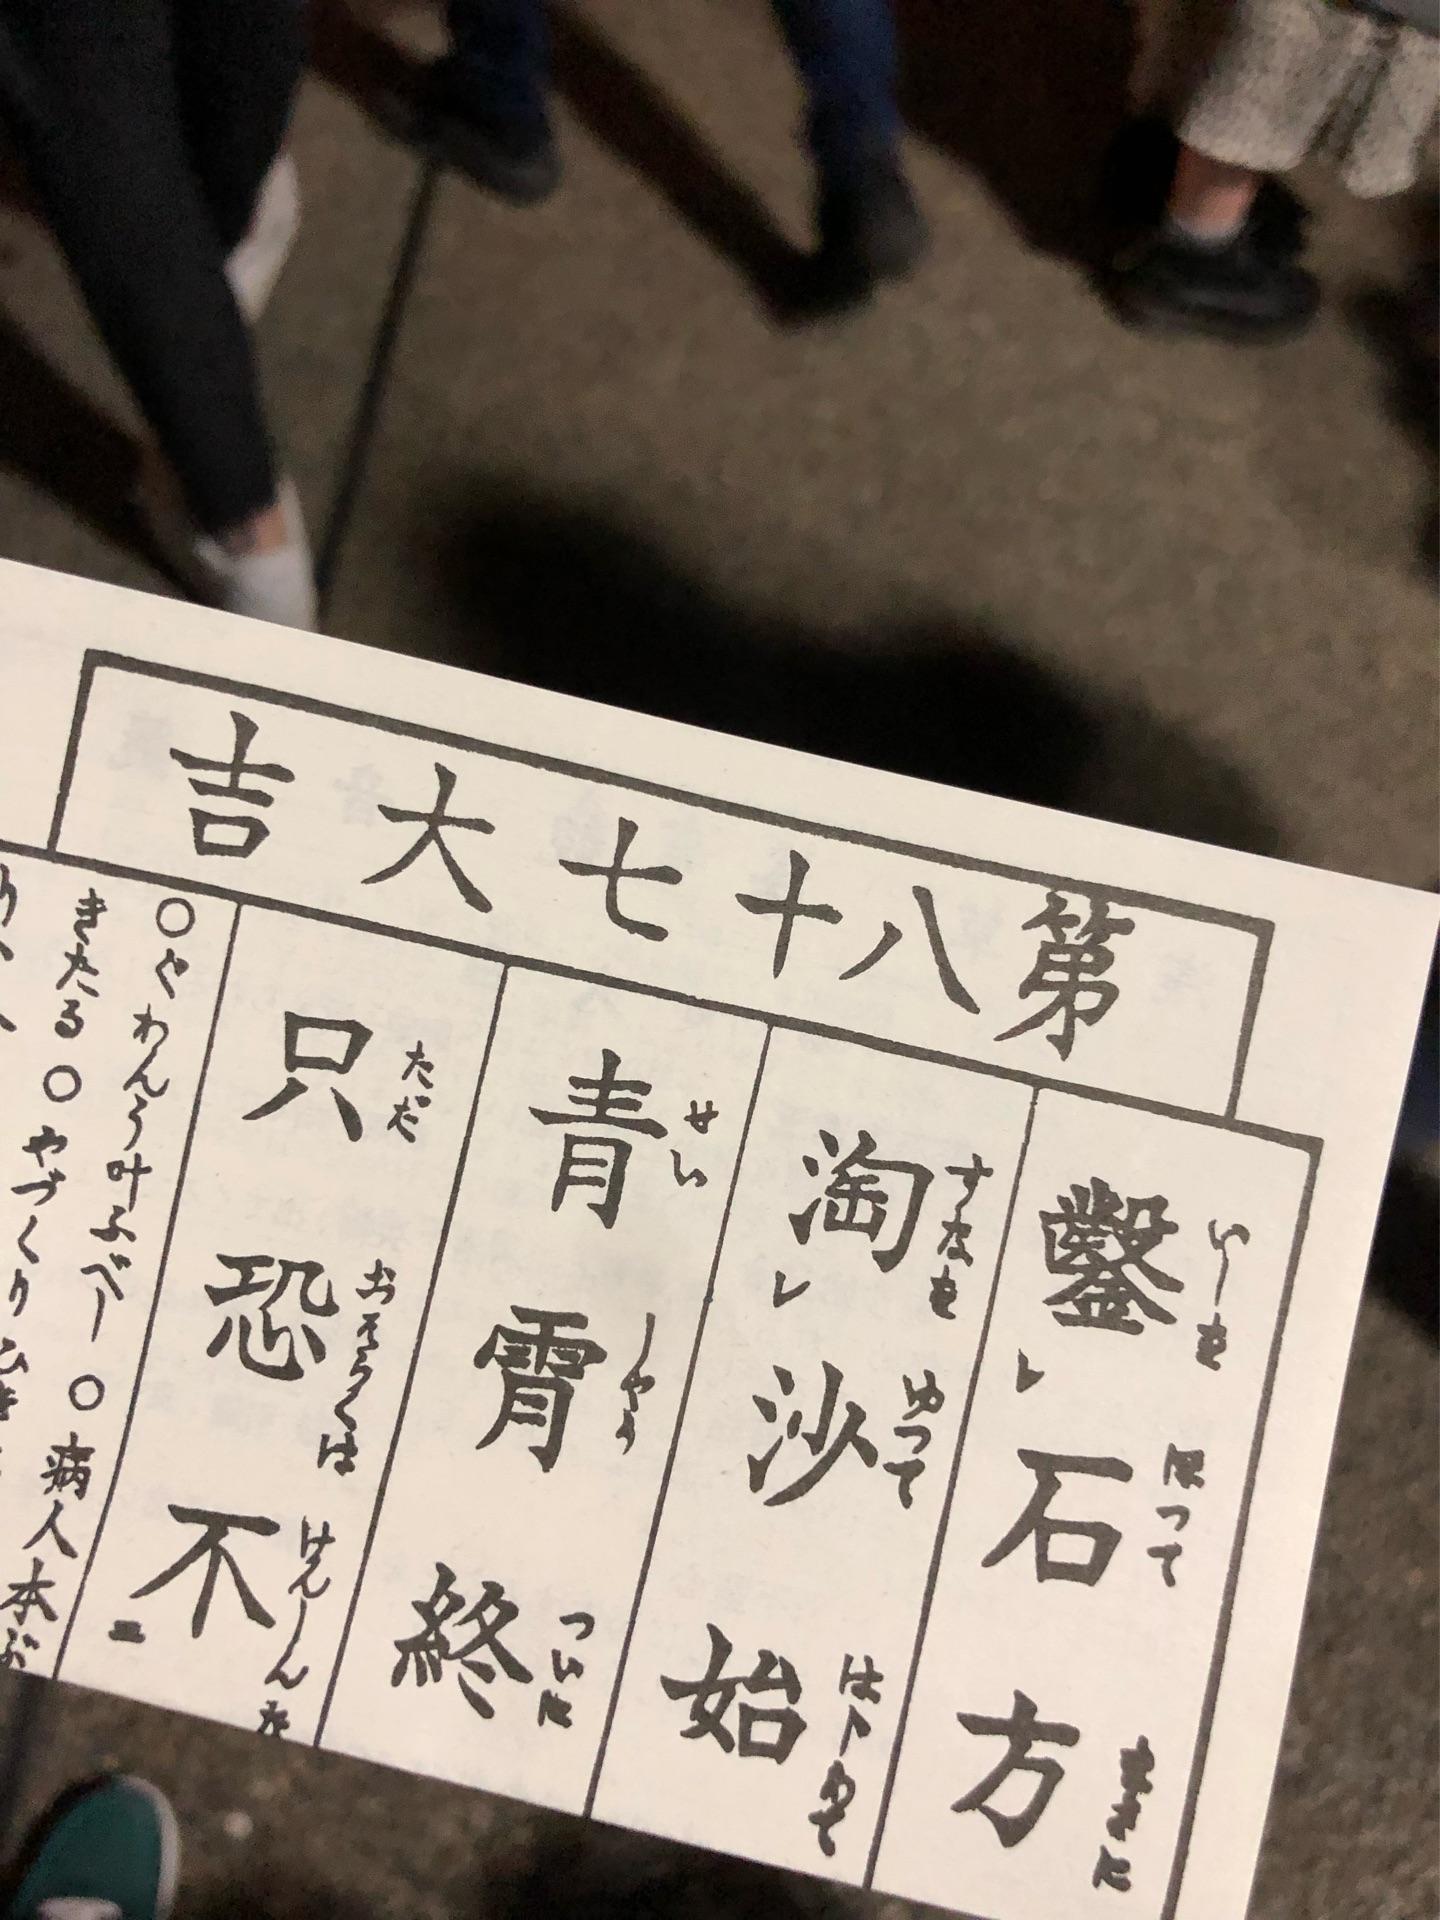 第八十七大吉
鑿レ石方
いしを ほつて まさに
淘レ沙始
すなを ゆつて はじめて
青霄終
せい しやう ついに
只恐不二
ただ おそらくは けんじんな
わんう叶ふべし〇病人本ぶ
きたる〇やづくりひき